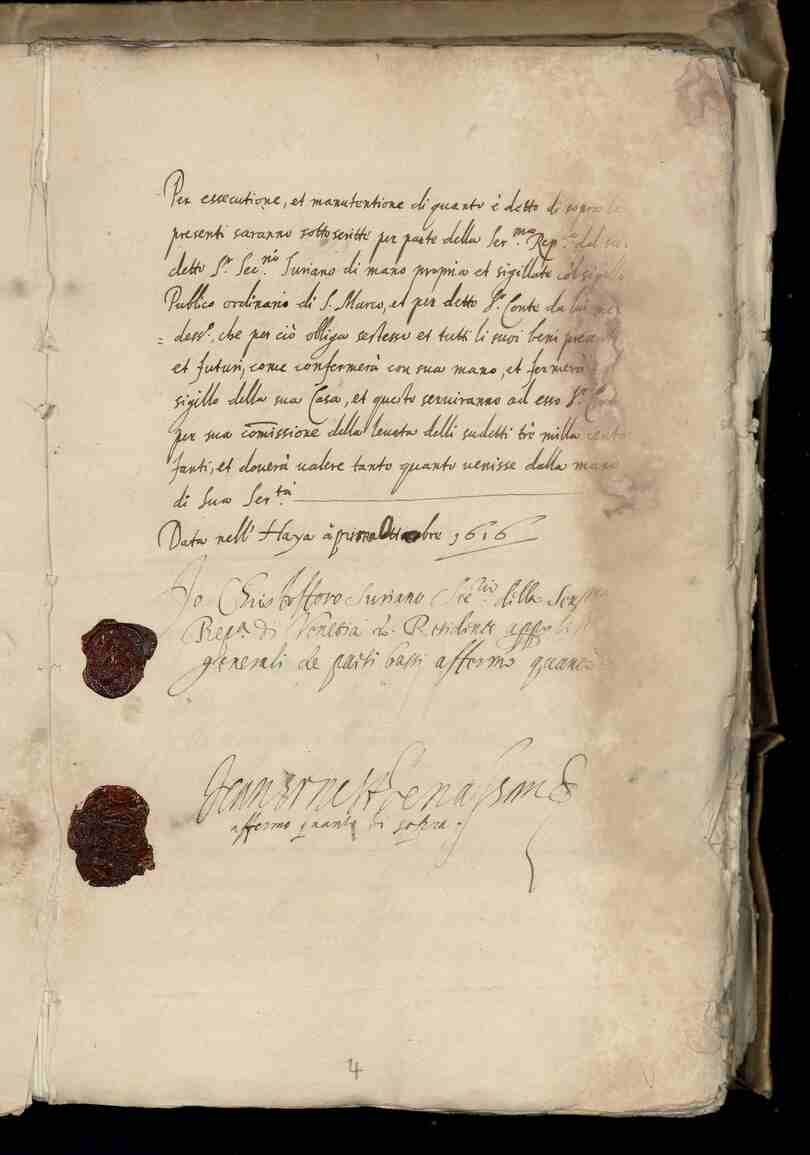 Per essecutione, et manutentione di quanto è detto di sopra le
presenti saranno sottoscritte per parte della Ser.ma Rep.ca dal
detto S.r Sec.rio Suriano di mano propria et sigillate col sigillo
Publico ordinario di S. Marco, et per detto S.r Conte da lui me
= dess.o, che per ciò obliga sestesso et tutti li suoi beni presenti
et futuri, come confermerà con sua mano, et fermerà
sigillo della sua Casa, et questo serviranno ad esso S.r Conte
per sua comissione della levata delli sudetti trè milla cento
fanti, et doverà valere tanto quanto venisse dalla mano
di Sua Ser.tà
Data nell' Haya à primo Ottobre 1616
Io Christofforo Suriano Sec.rio della Seren
Rep.ca di Venetia et Residente appo li
generali de paesi bassi affermo quanto
Jean Ernest de Nassau
affermo quanto di sopra.
4